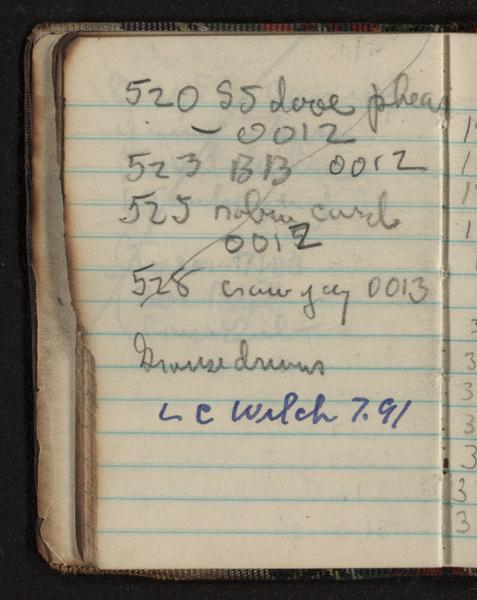 520 SS dove pheas
- 0012
523 BB 0012
525 robin card
0012
528 crow jay 0013
Grouse drums
L C Welch 7.91
1
1
1
1
3
3
3
3
3
3